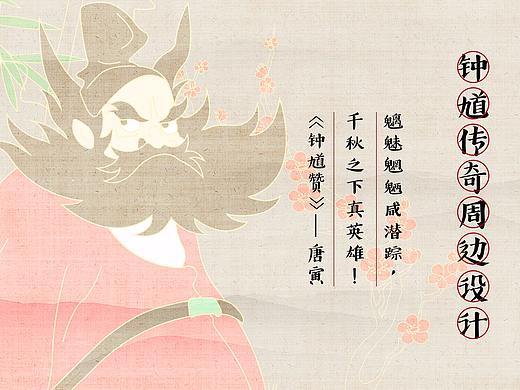 钟馗传奇周边设计
魑魅魍魉咸潜踪，
千秋之下真英雄！
《钟馗赞》——唐寅